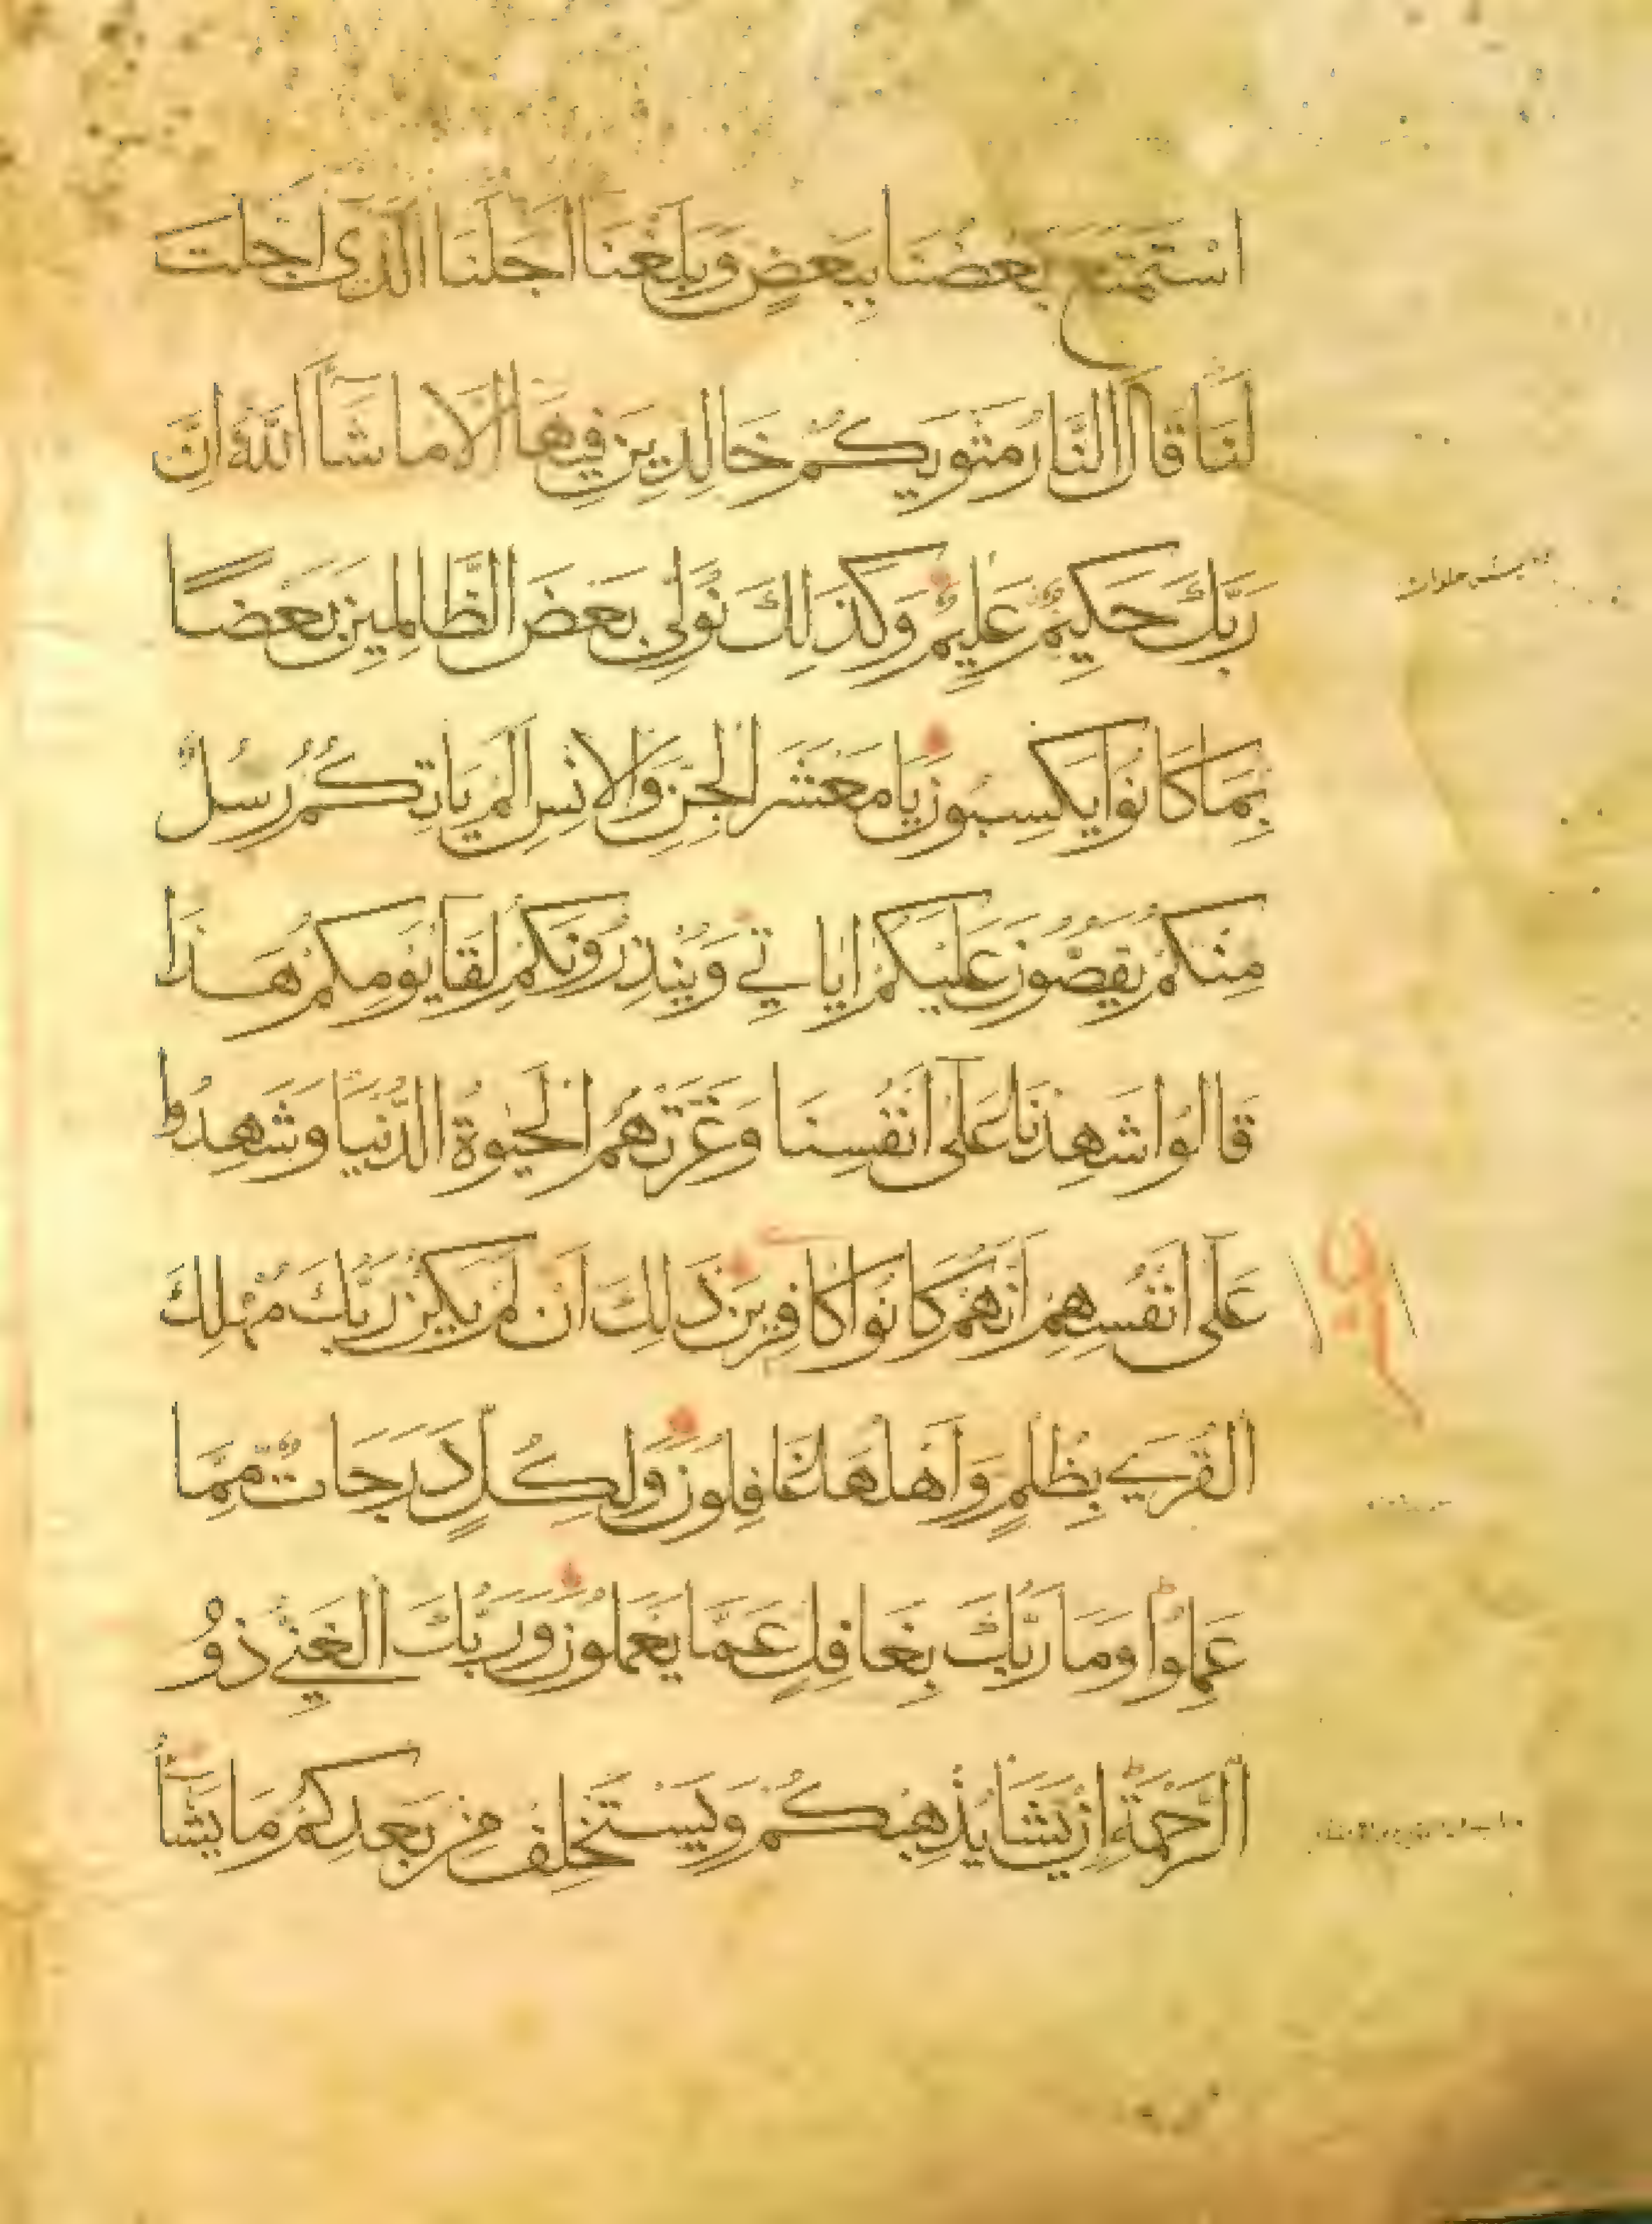 اسْتَمْتَعَ بَعْضُنَا بِبَعْضٍ وَبَلَغْنَا اَجَلَنَا الَّذِى اَجَّلْتَ
لَنَا قَالَ النَّارُ مَثْوٰيكُمْ خَالِدِينَ فِيهَا اِلَّا مَا شَآءَ اللّٰهُ اِنَّ
رَبَّكَ حَكِيمٌ عَلِيمٌ وَكَذٰلِكَ نُوَلِّى بَعْضَ الظَّالِمِينَ بَعْضًا
بِمَا كَانُوا يَكْسِبُونَ يَا مَعْشَرَ الْجِنِّ وَالْاِنْسِ اَلَمْ يَاْتِكُمْ رُسُلٌ
مِنْكُمْ يَقُصُّونَ عَلَيْكُمْ اٰيَاتِي وَيُنْذِرُونَكُمْ لِقَآ يَوْمِكُمْ هٰذَا
قَالُوا شَهِدْنَا عَلٰٓى اَنْفُسِنَا وَغَرَّتْهُمُ الْحَيٰوةُ الدُّنْيَا وَشَهِدُوا
عَلٰٓى اَنْفُسِهِمْ اَنَّهُمْ كَانُوا كَافِرِينَ ذٰلِكَ اَنْ لَمْ يَكُنْ رَبُّكَ مُهْلِكَ
الْقُرَي بِظُلْمٍ وَاَهْلُهَا غَافِلُونَ وَلِكُلٍّ دَرَجَاتٌ مِمَّا
عَمِلُوا وَمَا رَبُّكَ بِغَافِلٍ عَمَّا يَعْمَلُونَ وَرَبُّكَ الْغَنِيُّ ذُو
الرَّحْمَةِ اِنْ يَشَأْ يُذْهِبْكُمْ وَيَسْتَخْلِفْ مِنْ بَعْدِكُمْ مَا يَشَآءُ